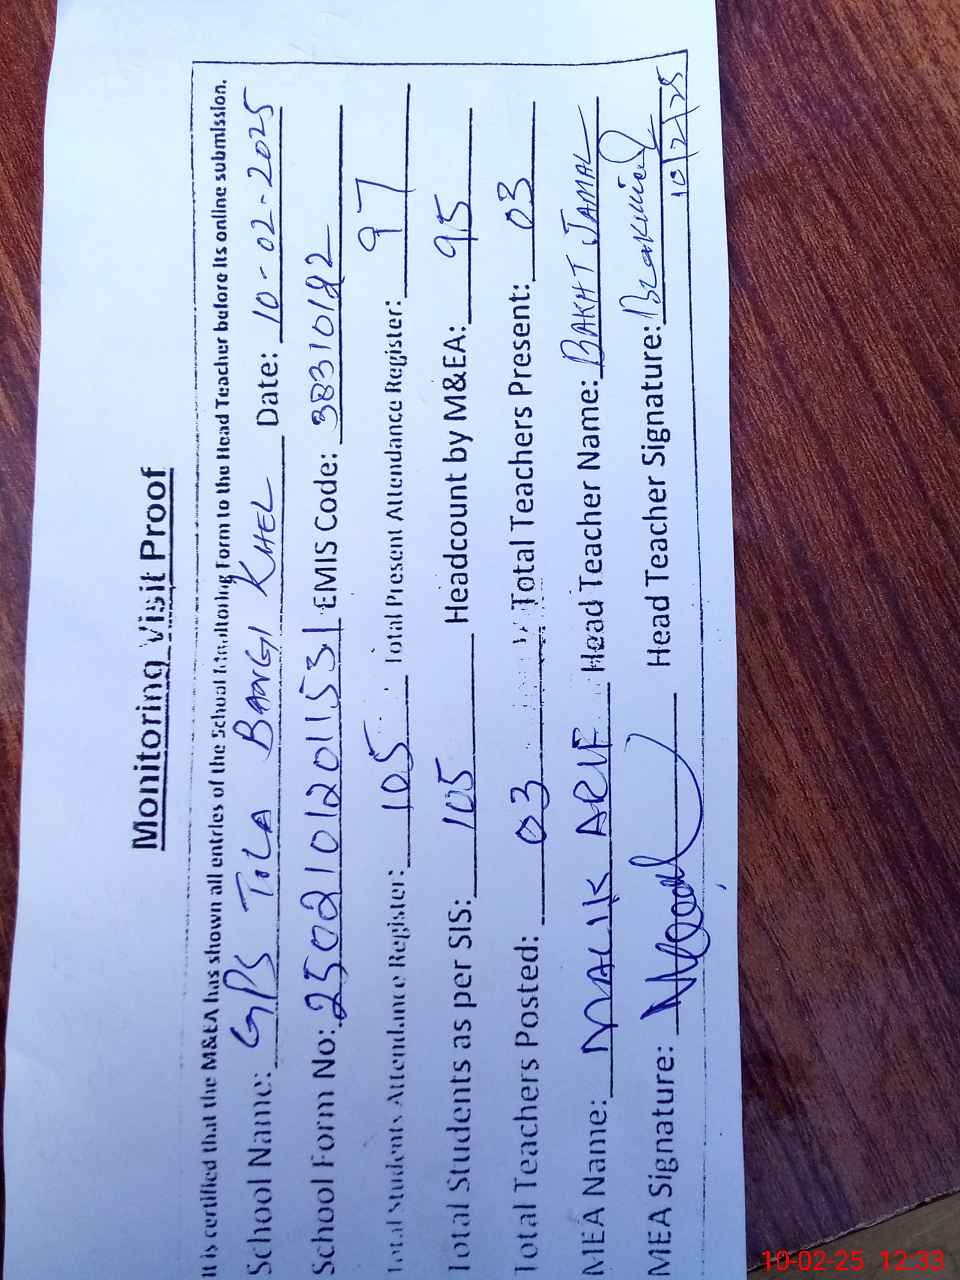 Monitoring Visit Proof
It is certified that the M&EA has shown all entries of the School Monitoring Form to the Head Teacher before its online submission.
School Name: GPS TILA BANGI KHEL Date: 10-02-2025
School Form No: 25021012011531 EMIS Code: 38310182
Total Students Attendance Register: 105 Total Present Attendance Register: 97
Total Students as per SIS: 105 Headcount by M&EA: 95
Total Teachers Posted: 03 Total Teachers Present: 03
MEA Name: MALIK ARIF Head Teacher Name: BAKHT JAMAL
MEA Signature: Head Teacher Signature:
10/2/25
10-02-25 12:33